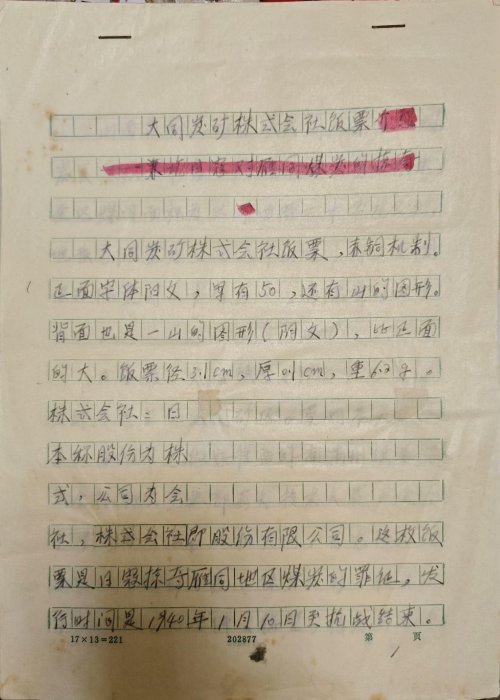 大同炭矿株式会社饭票
大同炭矿株式会社饭票，赤铜机制。
正面字体阳文，里有50，还有山的图形。
背面也是一山的图形（阴文），比正面
的大。饭票径3.1cm，厚0.1cm，重6.2g。
株式会社：日
本称股份为株
式，公司为会
社，株式会社即股份有限公司。这枚饭
票是日寇掠夺雁同地区煤炭的罪证，发
行时间是1940年1月10日至抗战结束。
17×13=221 202877 第 页
1